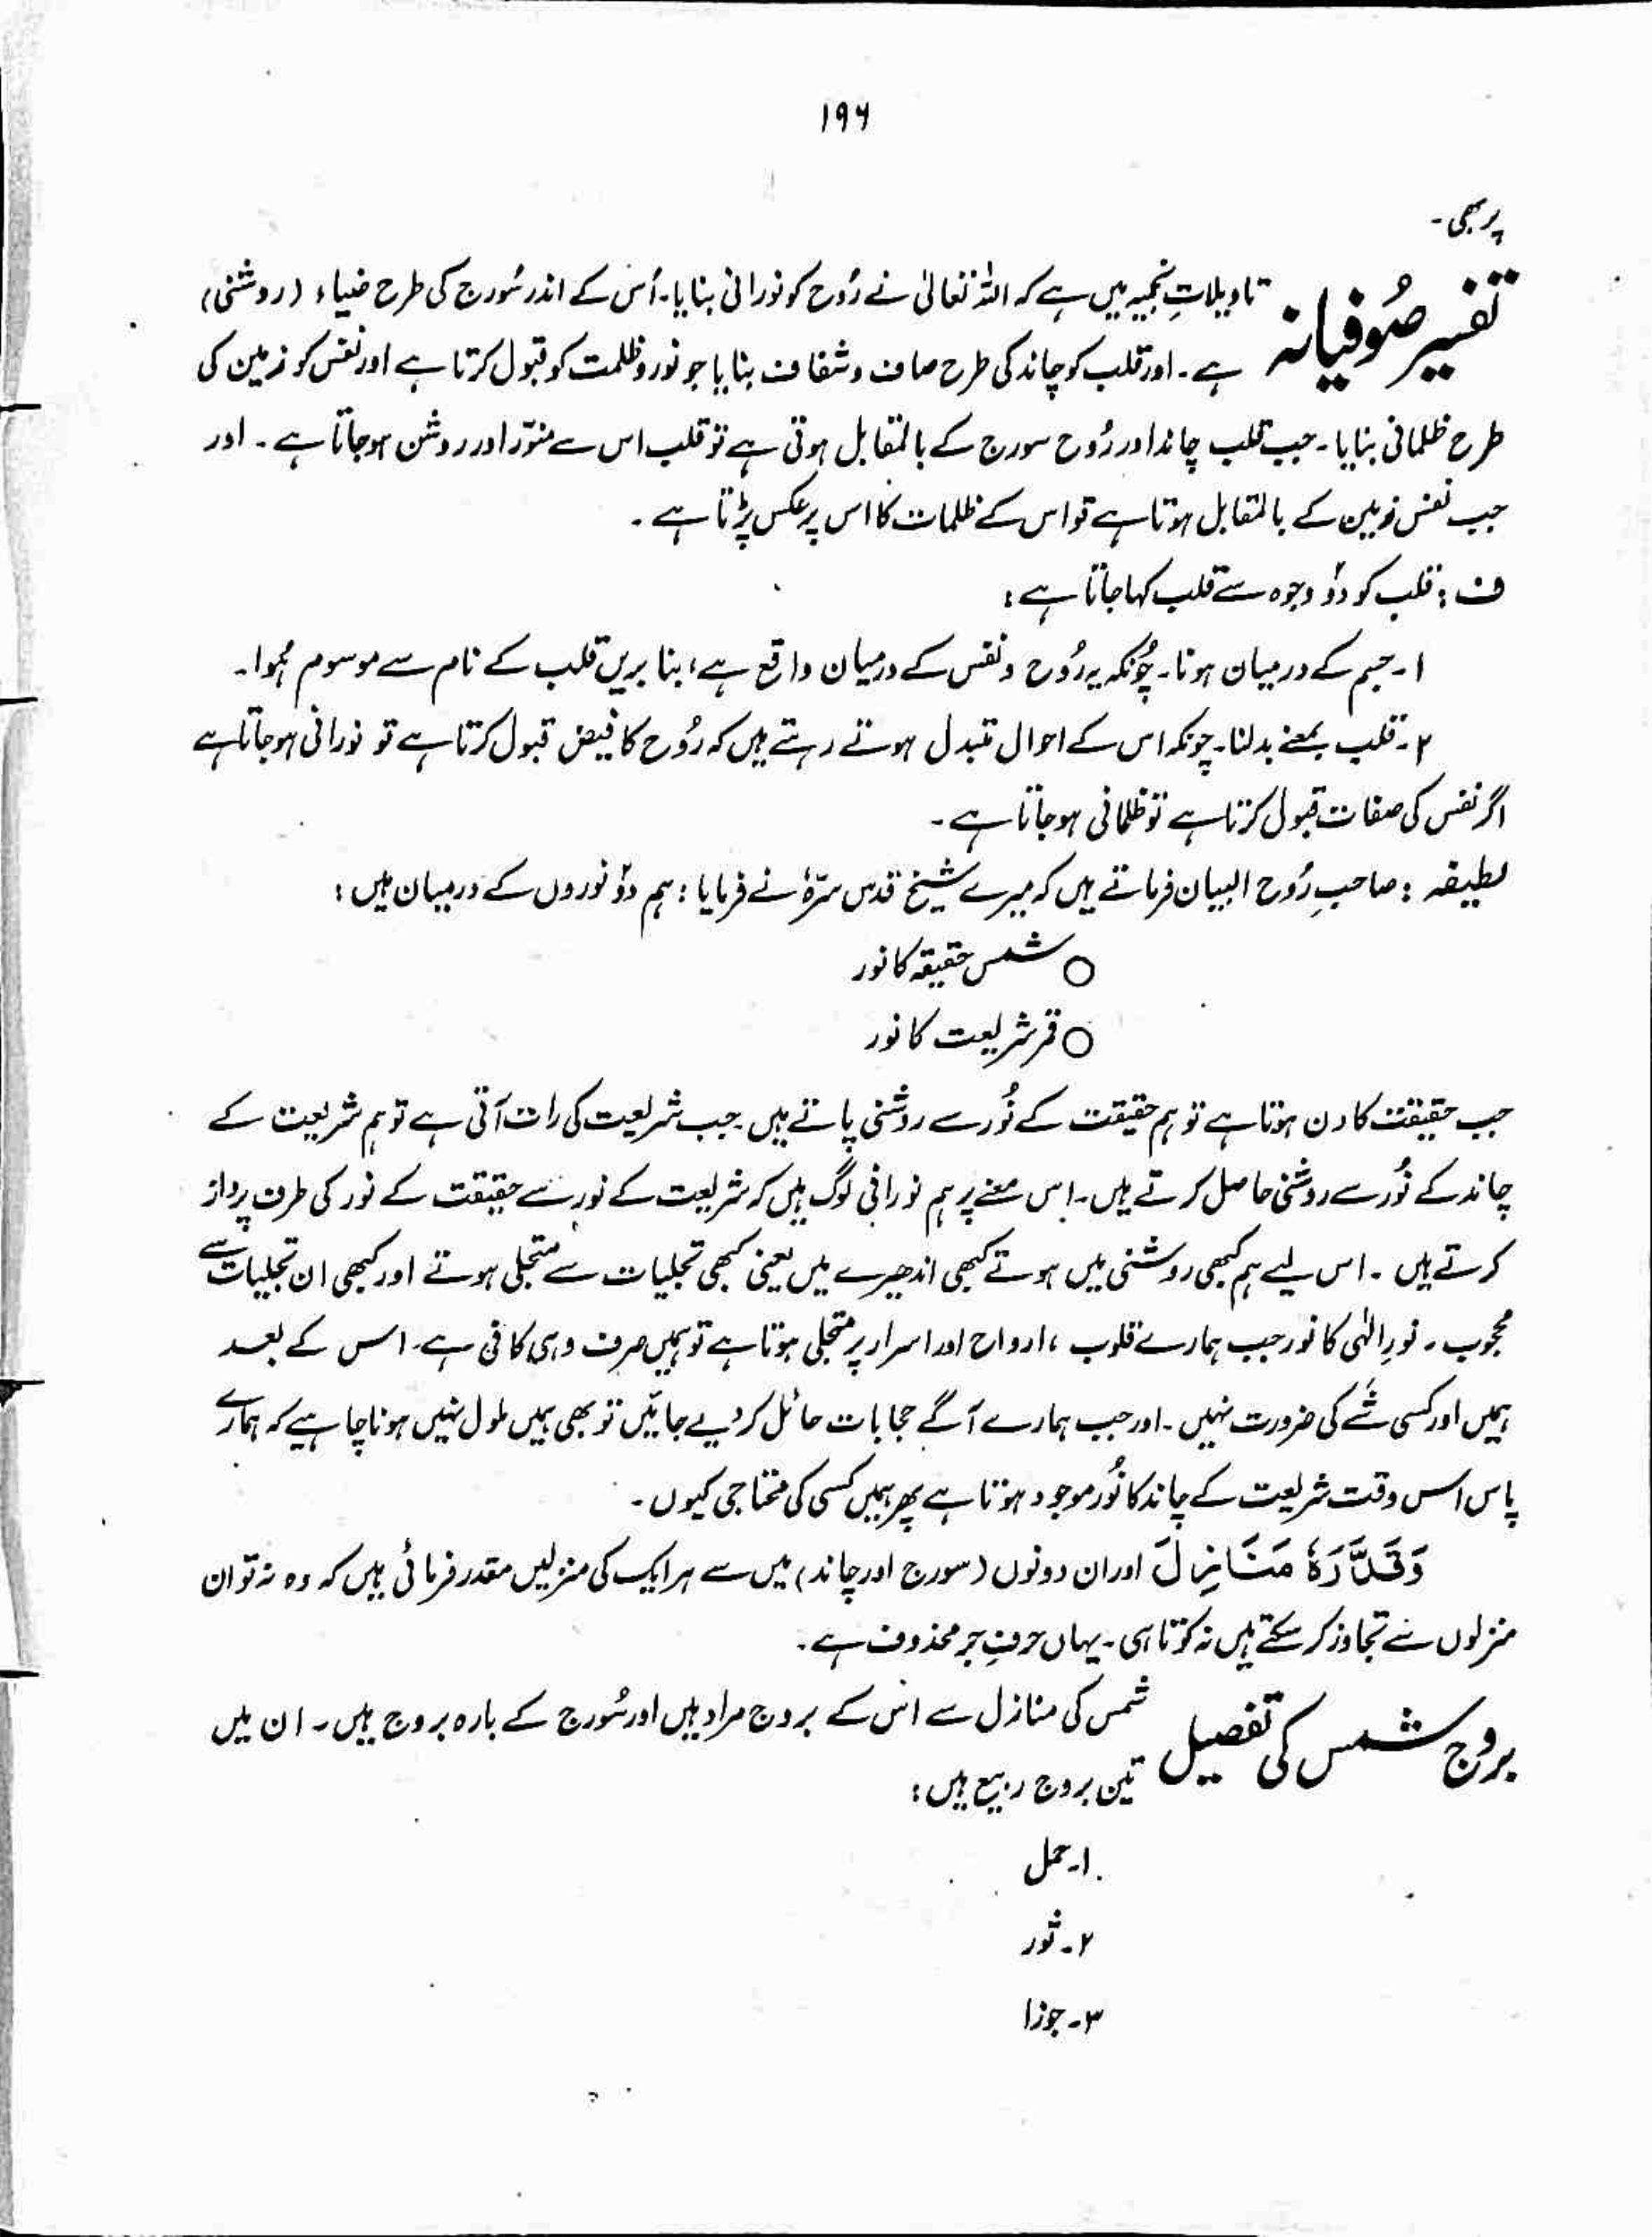 ۱۹۶
پر بھی۔
تفسیر صُوفیانہ
تاویلاتِ نجمیہ میں ہے کہ اللہ تعالیٰ نے رُوح کو نورانی بنایا۔ اُس کے اندر سُورج کی طرح ضیاء (روشنی)
ہے۔ اور قلب کو چاند کی طرح صاف و شفاف بنایا جو نور و ظلمت کو قبول کرتا ہے اور نفس کو زمین کی
طرح ظلمانی بنایا۔ جب قلب چاند اور رُوح سورج کے بالمقابل ہوتی ہے تو قلب اس سے منوّر اور روشن ہو جاتا ہے۔ اور
جب نفس زمین کے بالمقابل ہوتا ہے تو اس کے ظلمات کا اس پر عکس پڑتا ہے۔
ف : قلب کو دوؔ وجوہ سے قلب کہا جاتا ہے :
۱۔ جسم کے درمیان ہونا۔ چُونکہ یہ رُوح و نفس کے درمیان واقع ہے، بنا بریں قلب کے نام سے موسوم ہُوا۔
۲۔ قلب بمعنے بدلنا۔ چونکہ اس کے احوال متبدل ہوتے رہتے ہیں کہ رُوح کا فیض قبول کرتا ہے تو نورانی ہو جاتا ہے
اگر نفس کی صفات قبول کرتا ہے تو ظلمانی ہو جاتا ہے۔
لطیفہ : صاحبِ رُوح البیان فرماتے ہیں کہ میرے شیخ قدس سرّہٗ نے فرمایا : ہم دوؔ نوروں کے درمیان ہیں :
○ شمس حقیقہ کا نور
○ قمر شریعت کا نور
جب حقیقت کا دن ہوتا ہے تو ہم حقیقت کے نُور سے روشنی پاتے ہیں۔ جب شریعت کی رات آتی ہے تو ہم شریعت کے
چاند کے نُور سے روشنی حاصل کرتے ہیں۔ اس معنے پر ہم نورانی لوگ ہیں کہ شریعت کے نور سے حقیقت کے نور کی طرف پرواز
کرتے ہیں۔ اس لیے ہم کبھی روشنی میں ہوتے کبھی اندھیرے میں یعنی کبھی تجلیات سے متجلی ہوتے اور کبھی ان تجلیات سے
محجوب۔ نورِ الٰہی کا نور جب ہمارے قلوب، ارواح اور اسرار پر متجلی ہوتا ہے تو ہمیں صرف وہی کافی ہے۔ اس کے بعد
ہمیں اور کسی شَے کی ضرورت نہیں۔ اور جب ہمارے آگے حجابات حائل کر دیے جائیں تو بھی ہمیں ملول نہیں ہونا چاہیے کہ ہمارے
پاس اس وقت شریعت کے چاند کا نُور موجود ہوتا ہے پھر ہمیں کسی کی محتاجی کیوں۔
وَقَدَّرَہٗ مَنَازِلَ اور ان دونوں (سورج اور چاند) میں سے ہر ایک کی منزلیں مقدر فرمائی ہیں کہ وہ نہ تو ان
منزلوں سے تجاوز کر سکتے ہیں نہ کوتاہی۔ یہاں حرفِ جر محذوف ہے۔
بروج شمس کی تفصیل
شمس کی منازل سے اس کے بروج مراد ہیں اور سُورج کے بارہ بروج ہیں۔ ان میں
تین بروج ربیع ہیں :
۱۔ حمل
۲۔ ثور
۳۔ جوزا